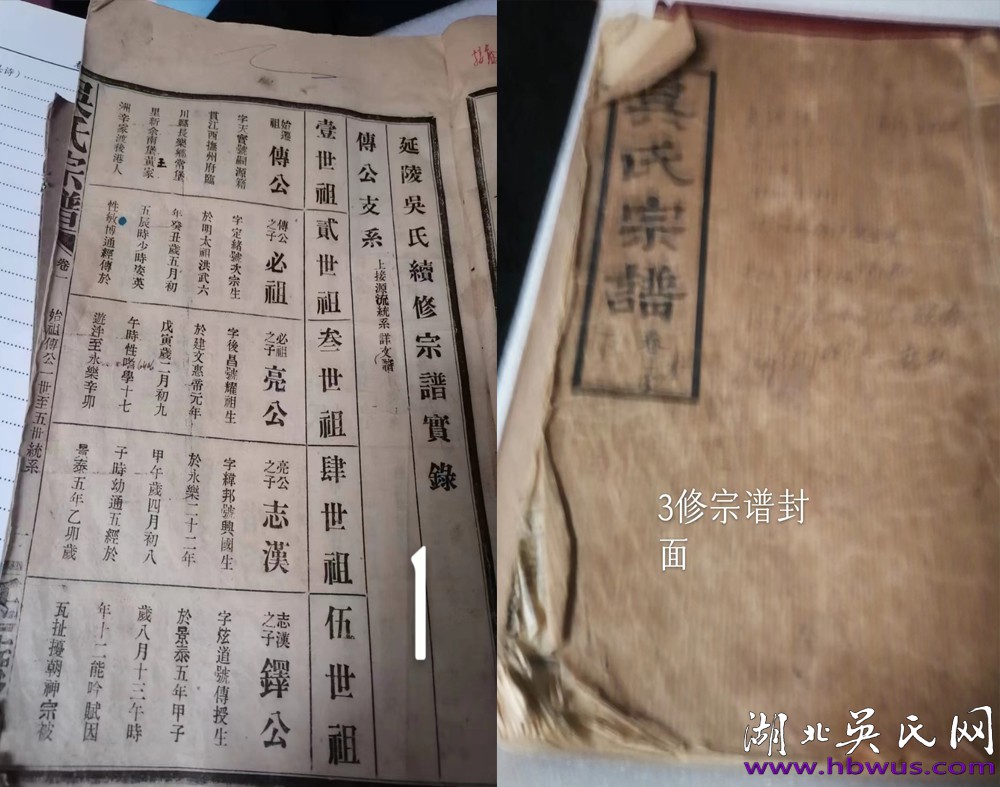 延陵吳氏續修宗譜實錄
傳公支系 上接源流統系詳文譜
壹世祖
貳世祖
叁世祖
肆世祖
伍世祖
始遷祖 傳公
字天寶號嗣源籍
貫江西撫州府臨
川縣長樂鄉常堡
里新余南堡黃家
王
洲李家渡後港人
傳公之子 必祖
字定緒號次宗生
於明太祖洪武六
年癸丑歲五月初
五辰時少時姿英
性敏博通經傳於
必祖之子 亮公
字後昌號耀祖生
於建文惠帝元年
戊寅歲二月初九
午時性嗜學十七
遊泮至永樂辛卯
亮公之子 志漢
字緯邦號興國生
於永樂二十二年
甲午歲四月初八
子時幼通五經於
景泰五年乙卯歲
志漢之子 鐸公
字炫道號傳授生
於景泰五年甲子
歲八月十三午時
年十二能吟賦因
瓦扯擾朝神宗被
吳氏宗譜 卷一
始祖傳公一世至五世統系
1
吳氏宗譜
卷
3修宗谱封
面
湖北吴氏网
www.hbwus.com